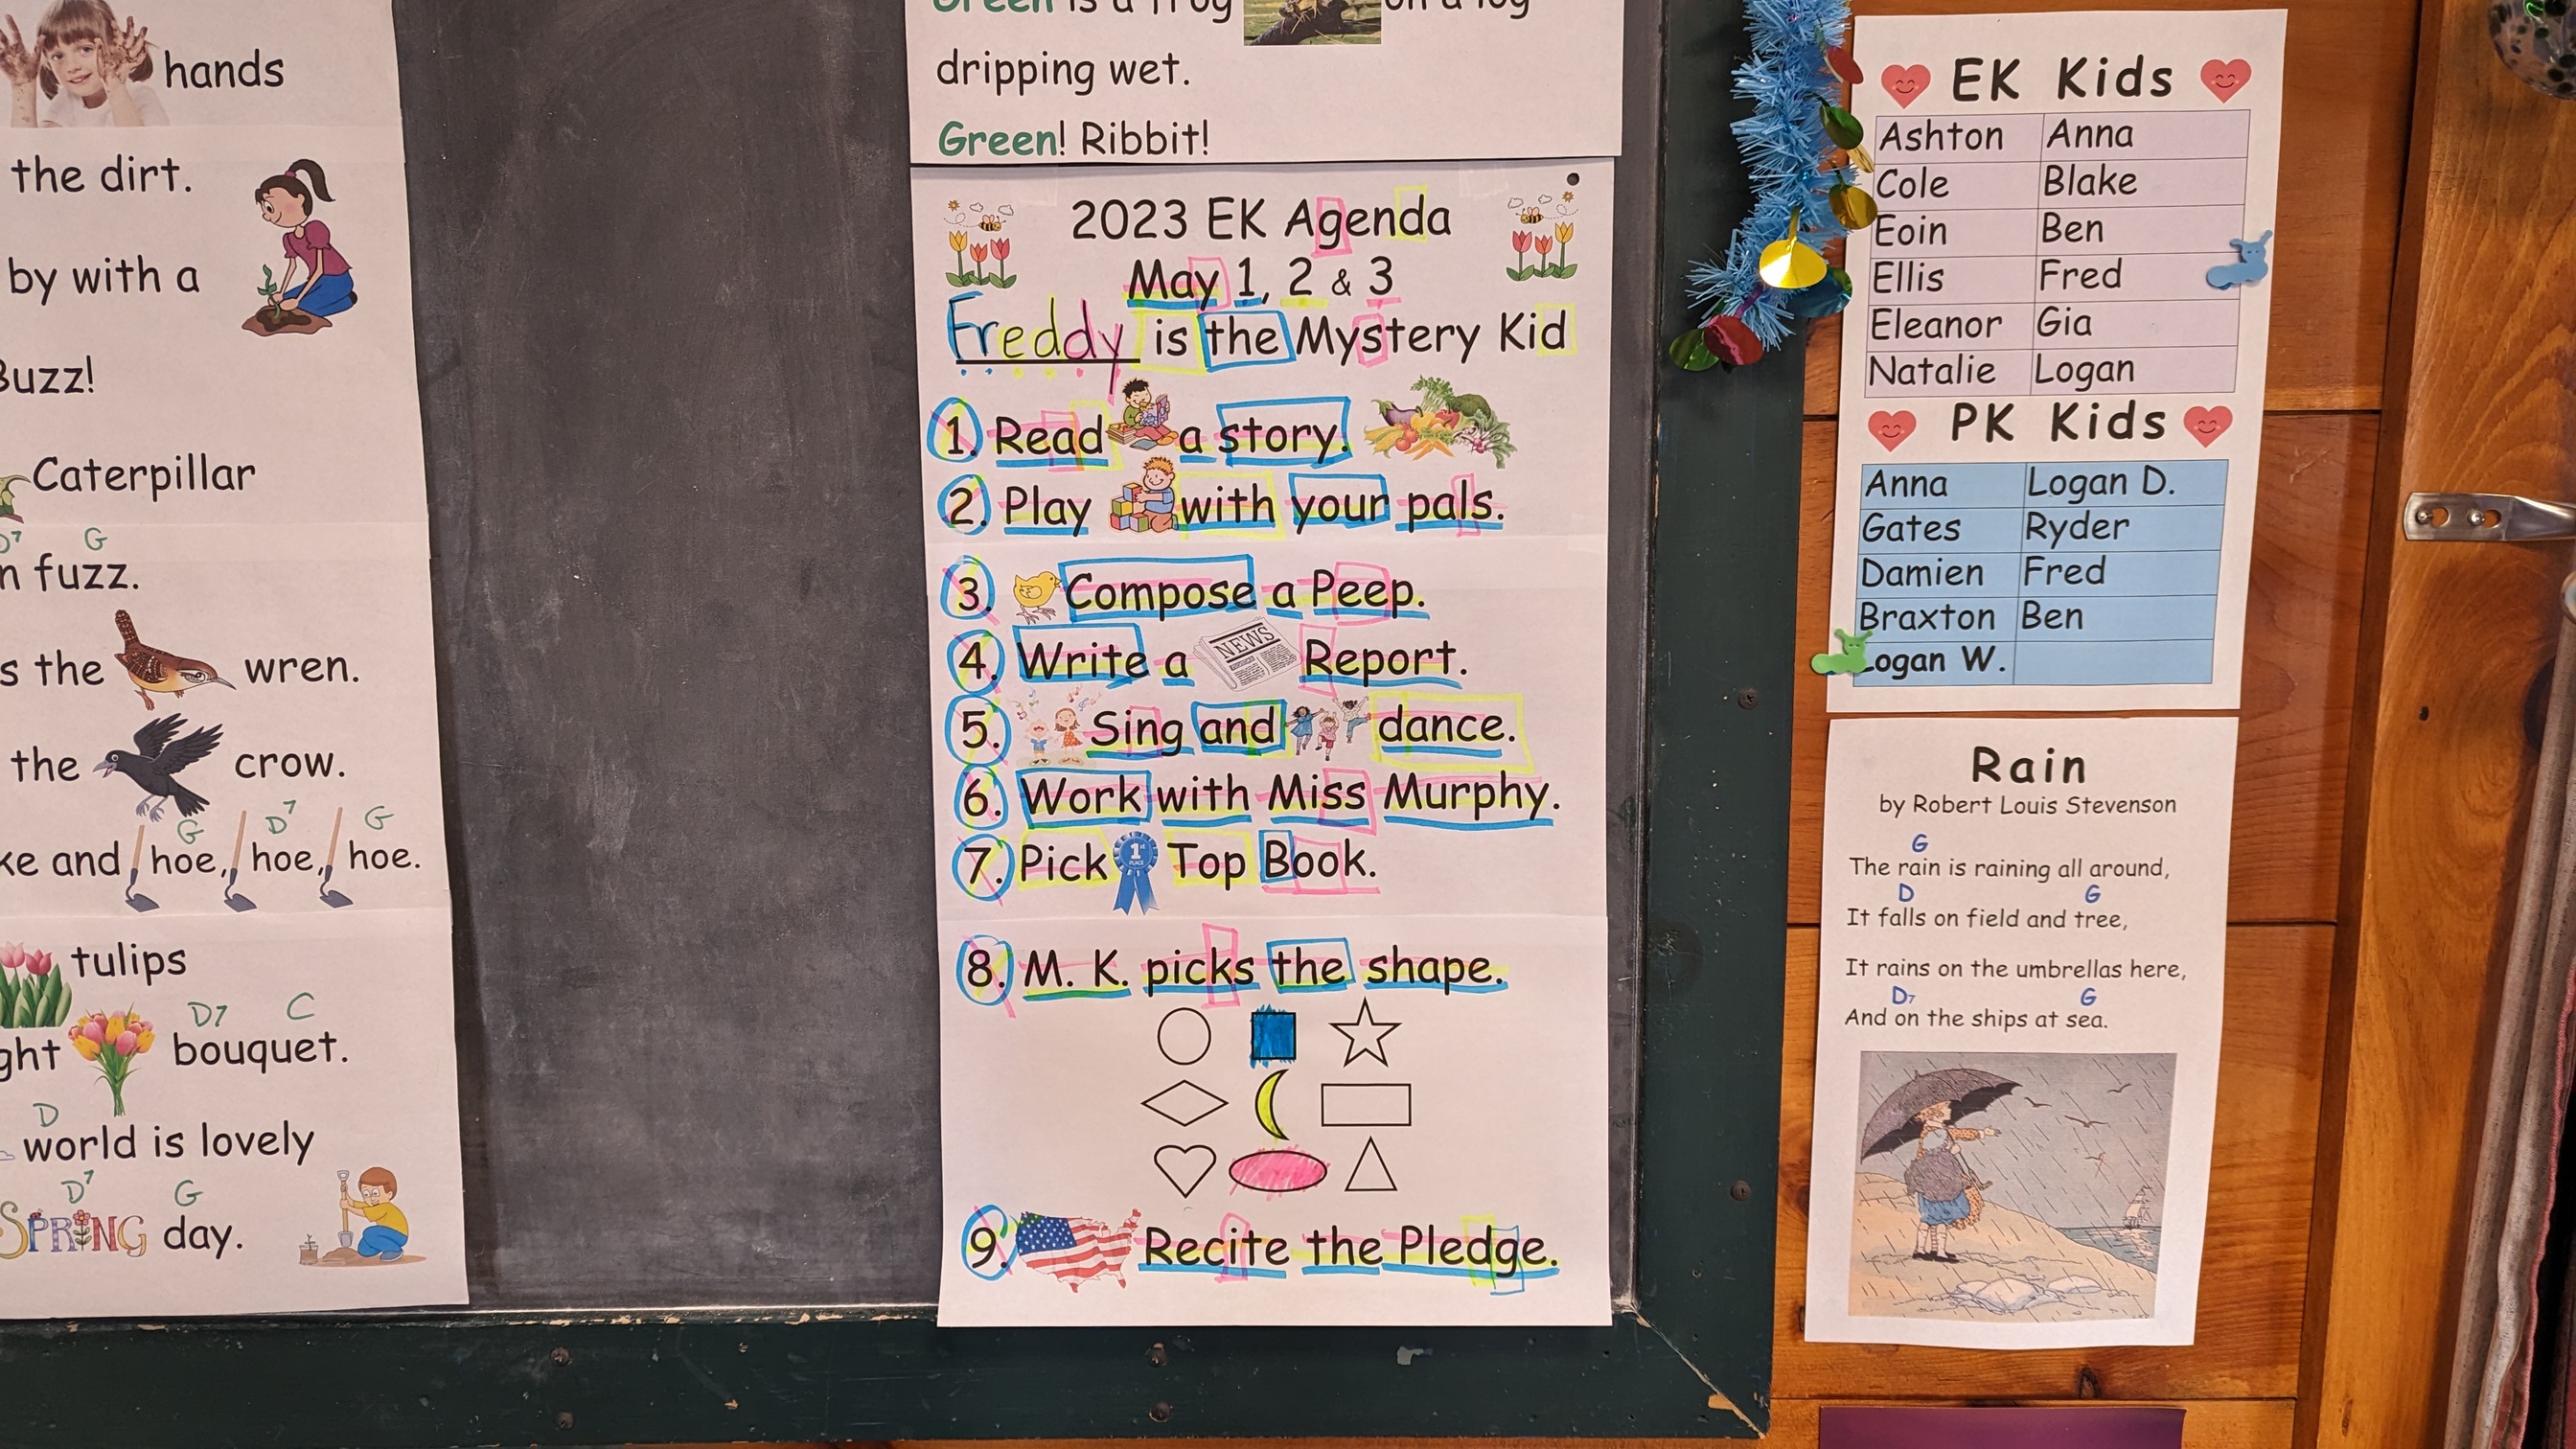 hands
the dirt.
by with a
Buzz!
Caterpillar
D7 G
fuzz.
s the wren.
the crow.
G D7 G
and hoe, hoe, hoe.
tulips
D7 C
bouquet.
D
world is lovely
D7 G
SPRING day.
Green is a frog on a log
dripping wet.
Green! Ribbit!
2023 EK Agenda
May 1, 2 & 3
Freddy is the Mystery Kid
1. Read a story.
2. Play with your pals.
3. Compose a Peep.
4. Write a NEWS Report.
5. Sing and dance.
6. Work with Miss Murphy.
7. Pick 1st PLACE Top Book.
8. M. K. picks the shape.
9. Recite the Pledge.
EK Kids
Ashton Anna
Cole Blake
Eoin Ben
Ellis Fred
Eleanor Gia
Natalie Logan
PK Kids
Anna Logan D.
Gates Ryder
Damien Fred
Braxton Ben
Logan W.
Rain
by Robert Louis Stevenson
G
The rain is raining all around,
D G
It falls on field and tree,
It rains on the umbrellas here,
D7 G
And on the ships at sea.